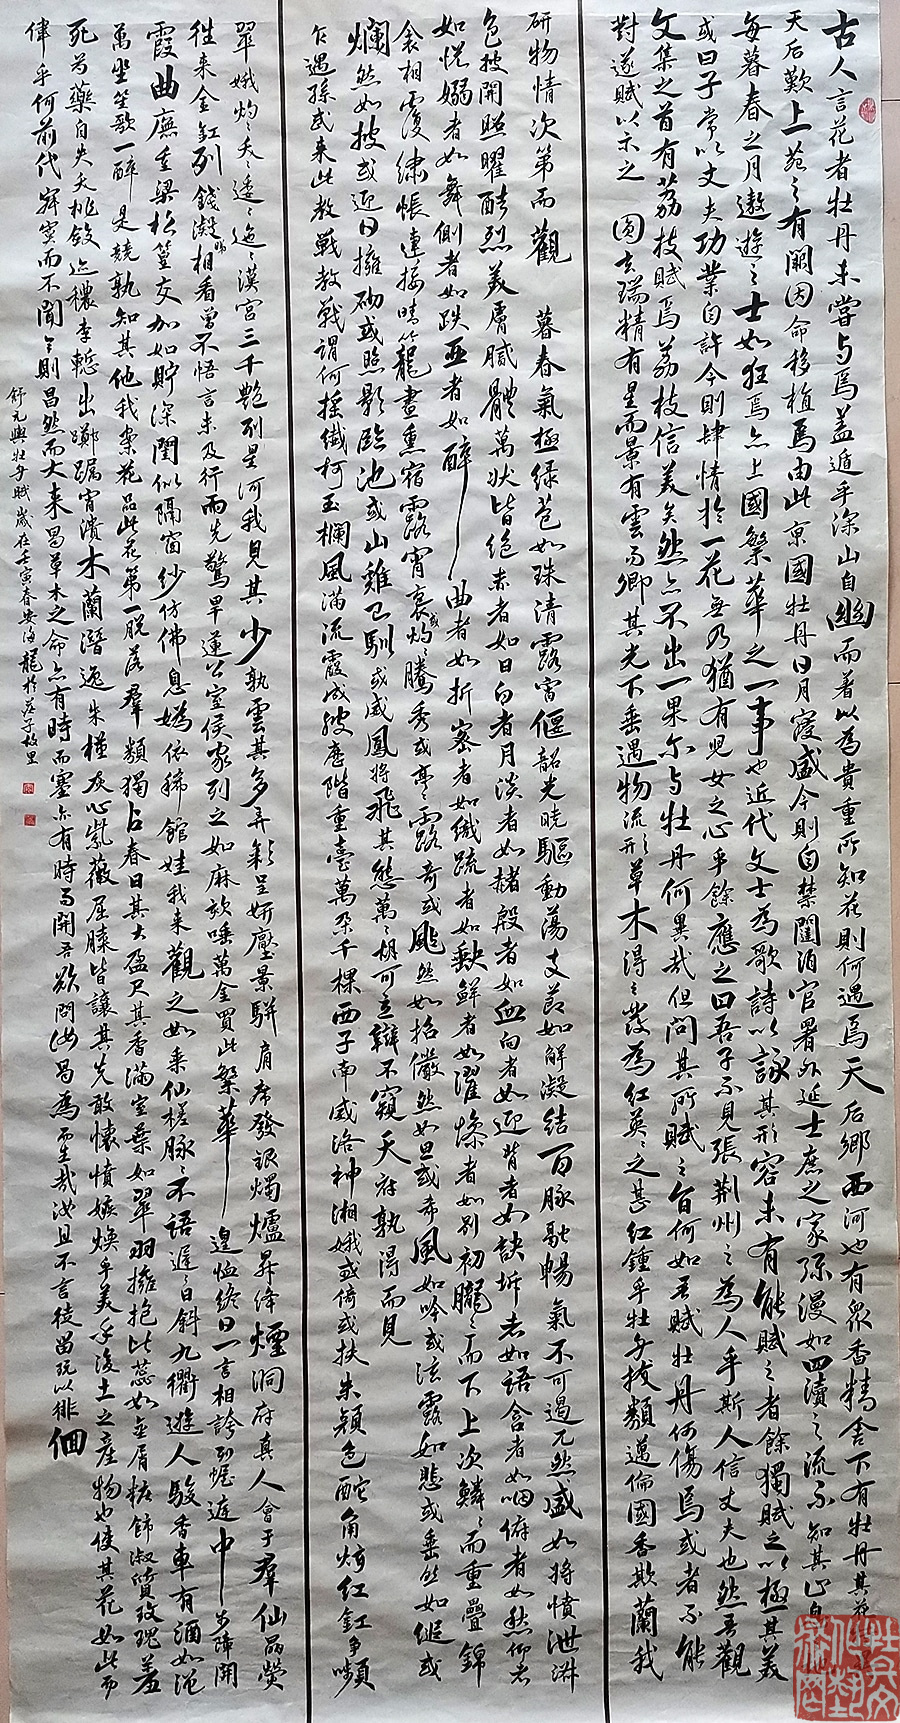 古人言花者牡丹未嘗与焉蓋遁乎深山自幽而著以為貴重所知花則何遇焉天后鄉西河也有眾香精舍下有牡丹其花
天后歎上苑之有闕因命移植焉由此京國牡丹日月寖盛今則自禁闥洎官署外延士庶之家弥漫如四瀆之流不知其止息
每暮春之月遨遊之士如狂焉亦上國繁華之一事也近代文士為歌詩以詠其形容未有能賦之者餘獨賦之以極其美
或曰子常以丈夫功業自許今則肆情於一花無乃猶有兒女之心乎餘應之曰吾子不見張荊州之為人乎斯人信丈夫也然吾觀
文集之首有荔枝賦焉荔枝信美矣然亦不出一果尔与牡丹何異哉但問其所賦之旨何如吾賦牡丹何傷焉或者不能
對遂賦以示之 圓玄瑞精有星而景有雲而卿其光下垂遇物流形草木得之發為紅英英之甚紅鍾乎牡丹拔類邁倫國香欺蘭我
研物情次第而觀 暮春氣極綠苞如珠清露宵偃韶光曉驅動蕩支節如解凝結百脉融暢氣不可遏兀然盛如將憤泄淋
色披開照曜酷烈美膚膩體萬狀皆絕赤者如日白者月淡者如赭殷者如血向者如迎背者如訣坼者如語含者如咽俯者如愁仰者
如悦嫋者如舞側者如跌亞者如醉曲者如折密者如織疏者如缺鮮者如濯慘者如別初朧朧而下上次鱗鱗而重疊錦
衾相覆繡帳連接晴籠晝熏宿露宵裛或灼灼騰秀或亭亭露奇或颭然如招儼然如思或希風如吟或泫露如悲或垂然如縋或
爛然如披或迎日擁砌或照影臨池或山雞已馴或威鳳將飛其態萬萬胡可立辯不窺天府孰得而見
乍遇孫武來此教戰教戰謂何搖纖柯玉欄風滿流霞成波歷階重臺萬朵千棵西子南威洛神湘娥或倚或扶朱顏色酡角炫紅釭爭嚬
翠娥灼灼夭夭逶逶迤迤漢宮三千艷列星河我見其少孰雲其多弄彩呈妍壓景駢肩席發銀燭爐昇絳煙洞府真人會于群仙晶熒
往來金釭列錢凝睇相看曾不悟言未及行雨先驚旱蓮公室侯家列之如麻欬唾萬金買此繁華遑恤終日一言相誇列幄庭中步障開
霞曲廡重梁松篁交加如貯深閨似隔窗紗仿佛息媯依稀館娃我來觀之如乘仙槎脉脉不語遲遲日斜九衢遊人駿香車有酒如澠
萬坐笙歌一醉是競孰知其他我案花品此花第一脱落群類獨占春日其大盈尺其香滿室葉如翠羽擁抱比蕊如金屑粧飾淑質玫瑰羞
死芍藥自失夭桃斂迹穠李慙出躑躅宵潰木蘭潛逸朱槿灰心紫薇屈膝皆讓其先敢懷憤嫉煥乎美乎後土之產物也使其花如此而
偉乎何前代寂寞而不聞今則昌然而大來曷草木之命亦有時而塞亦有時而開吾欲問汝曷為而生哉汝且不言徒留玩以徘徊
舒元輿牡丹賦歲在壬寅春安海龍於莊子故里